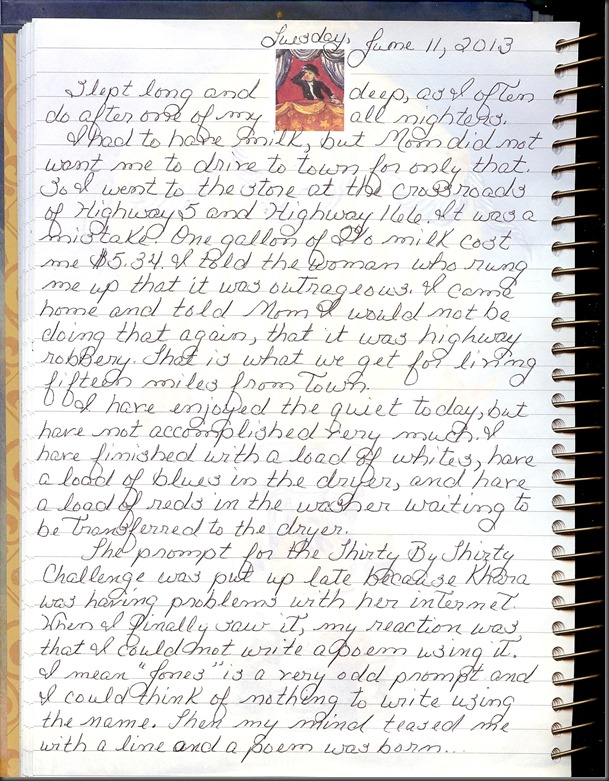 Tuesday, June 11, 2013
I slept long and deep, as I often
do after one of my all nighters.
I had to have milk, but Mom did not
want me to drive to town for only that.
So I went to the store at the crossroads
of Highway 5 and Highway 166. It was a
mistake. One gallon of 2% milk cost
me $5.34. I told the woman who rung
me up that it was outrageous. I came
home and told Mom I would not be
doing that again, that it was highway
robbery. That is what we get for living
fifteen miles from town.
I have enjoyed the quiet today, but
have not accomplished very much. I
have finished with a load of whites, have
a load of blues in the dryer, and have
a load of reds in the washer waiting to
be transferred to the dryer.
The prompt for the Thirty By Thirty
Challenge was put up late because Khara
was having problems with her internet.
When I finally saw it, my reaction was
that I could not write a poem using it.
I mean "Jones" is a very odd prompt and
I could think of nothing to write using
the name. Then my mind teased me
with a line and a poem was born...